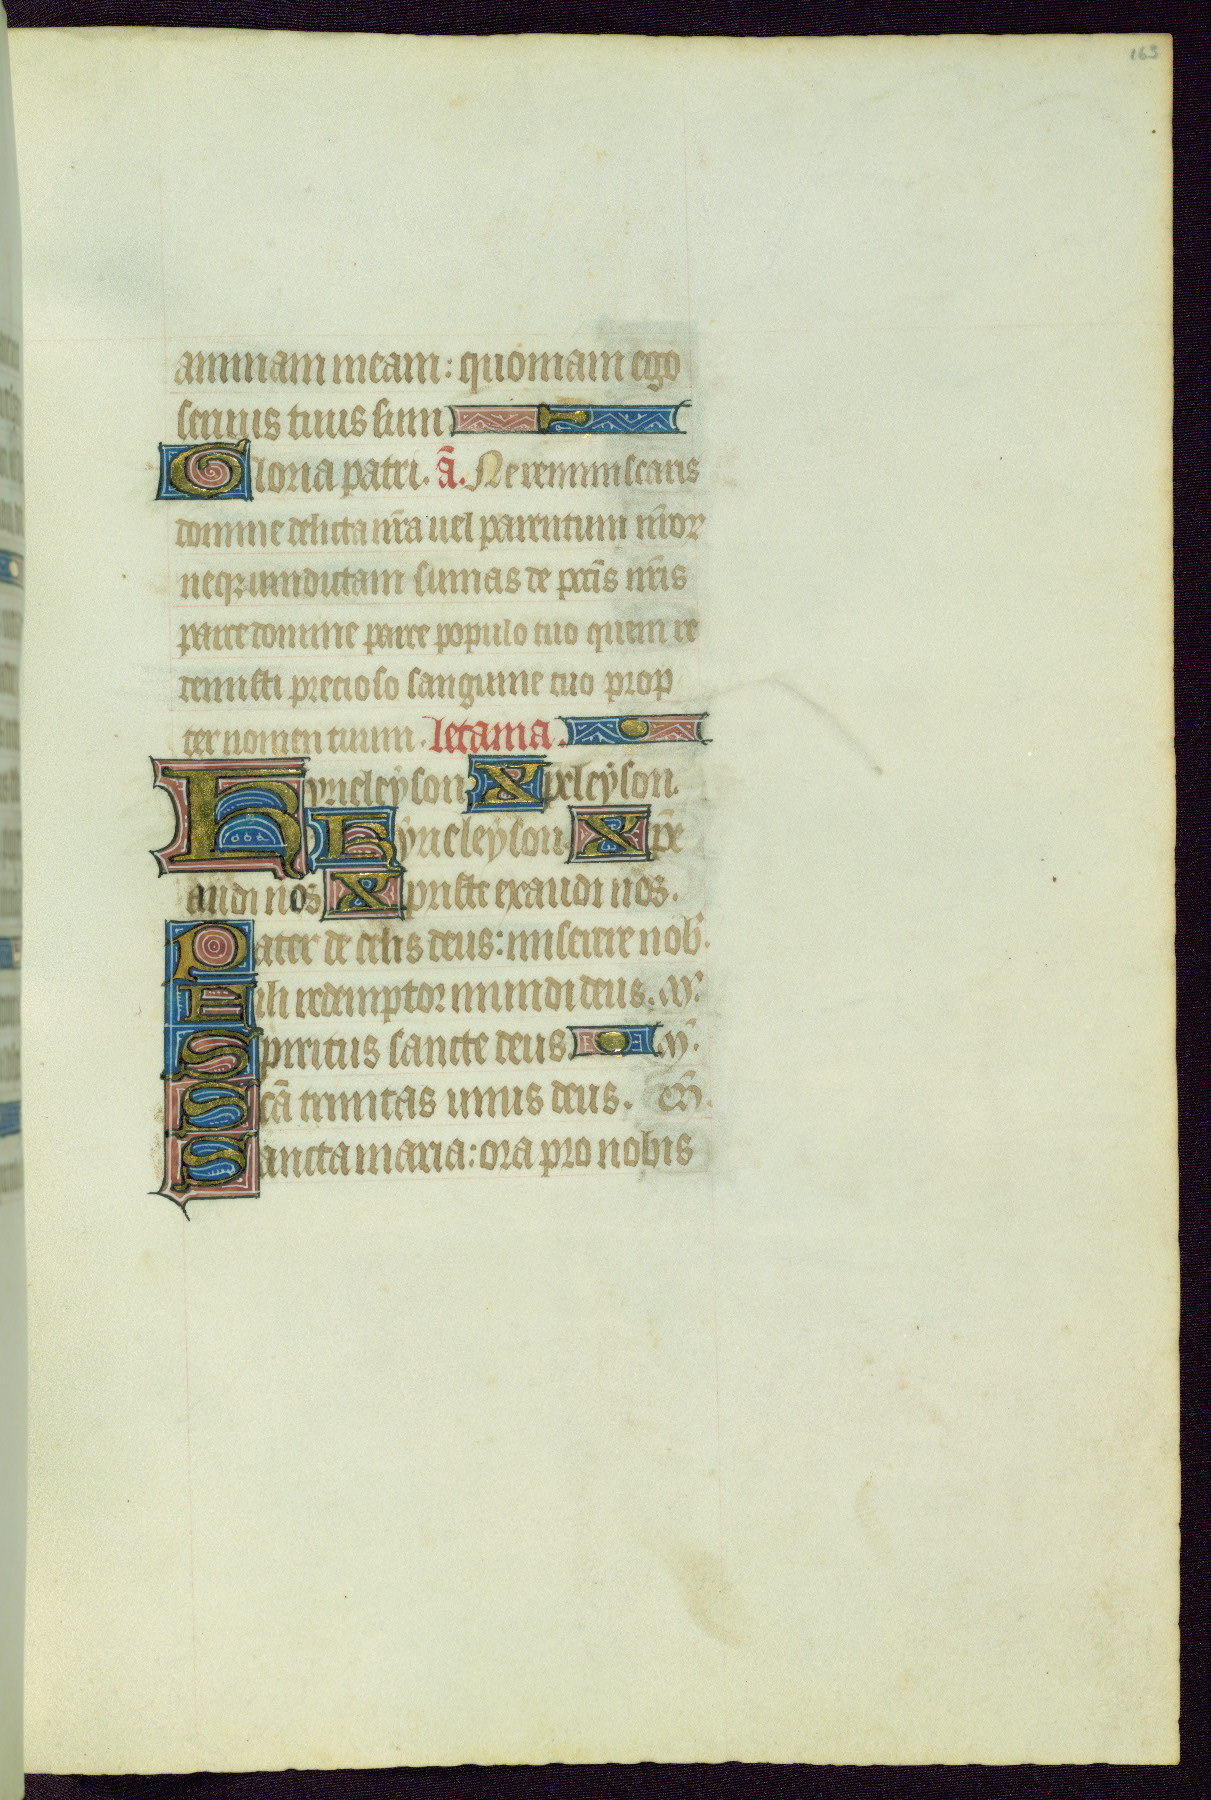 163
animam meam: quoniam ego
seruus tuus sum
Gloria patri. ã. Ne reminiscaris
domine delicta nr̃a uel parentum nr̃oꝝ
neqꝫ uindictam sumas de pctĩs nr̃is
parce domine parce populo tuo quem re
demisti precioso sanguine tuo prop
ter nomen tuum. letania.
Kyrieleyson Xpeleyson.
Kyrieleyson Xpe
audi nos Xpriste exaudi nos.
Pater de celis deus: miserere nob̾.
Fili redemptor mundi deus. M̾.
Spiritus sancte deus M̾.
Scã trinitas unus deus.
Sancta maria: ora pro nobis